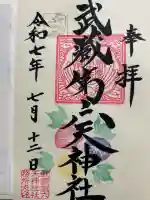 奉拝
武蔵第六天神社
令和七年 七月 十二日